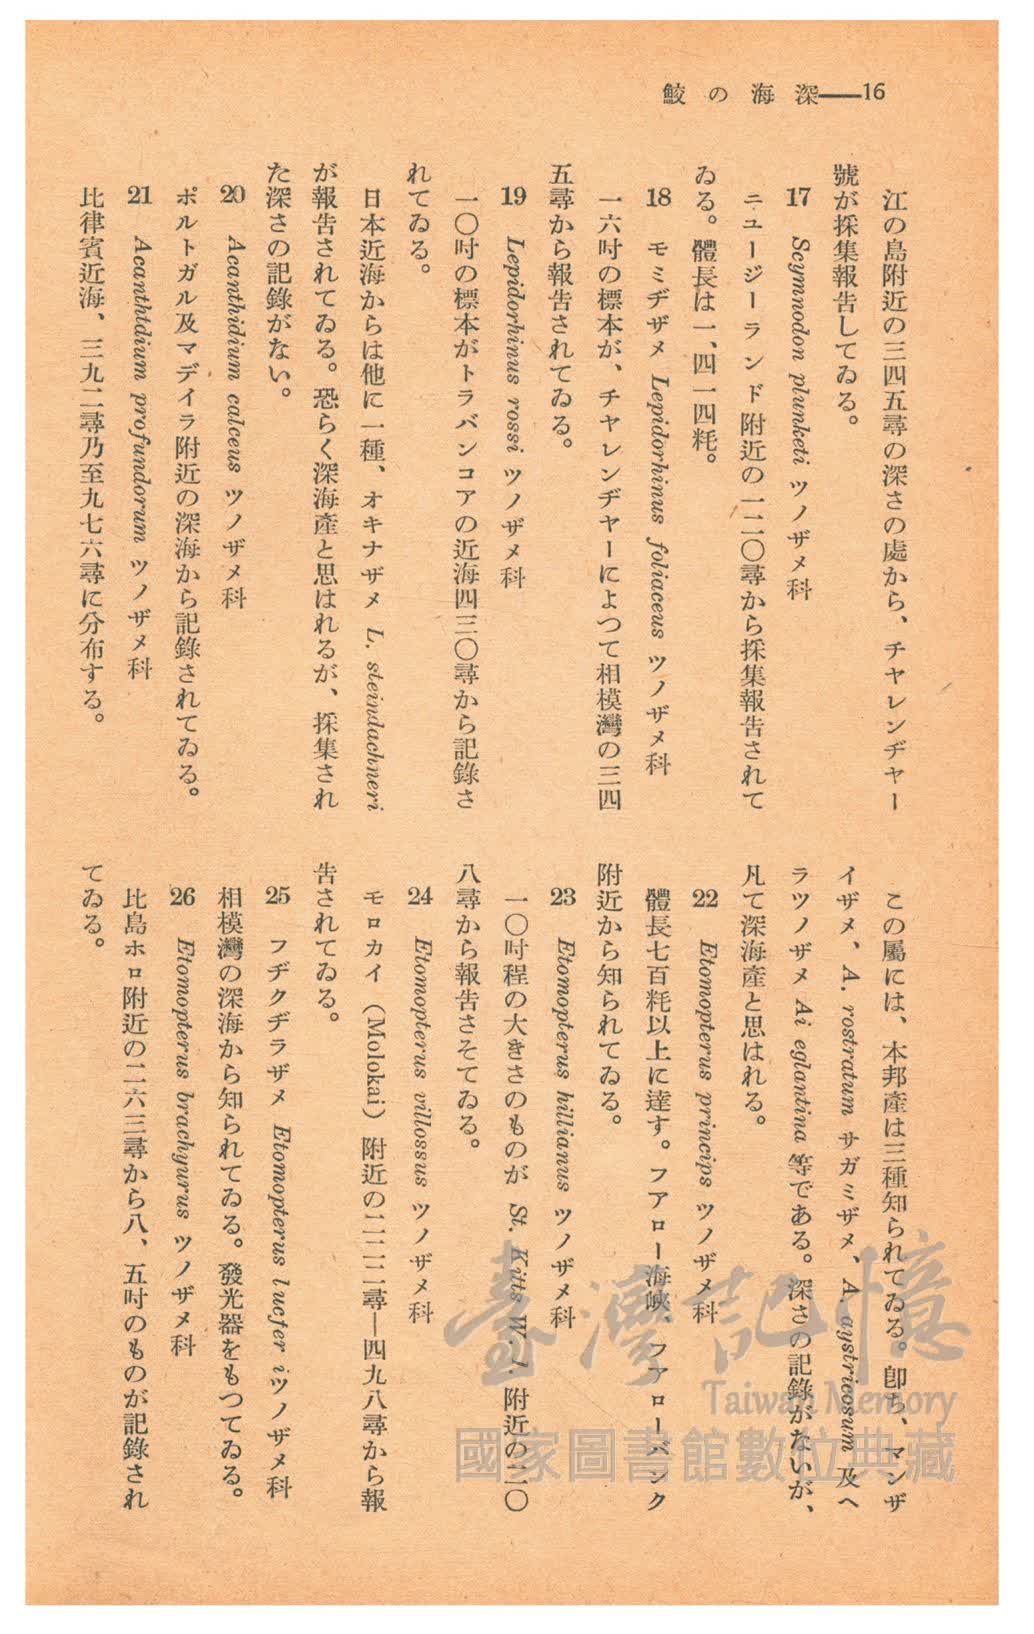 鮫の海深——16
江の島附近の三四五尋の深さの處から、チヤレンヂヤー
號が採集報告してゐる。
17 Scymnodon plunketi ツノザメ科
ニユージーランド附近の一二〇尋から採集報告されて
ゐる。體長は一、四一四粍。
18 モミヂザメ Lepidorhinus foliaceus ツノザメ科
一六吋の標本が、チヤレンヂヤーによつて相模灣の三四
五尋から報告されてゐる。
19 Lepidorhinus rossi ツノザメ科
一〇吋の標本がトラバンコアの近海四三〇尋から記錄さ
れてゐる。
日本近海からは他に一種、オキナザメ L. steindachneri
が報告されてゐる。恐らく深海產と思はれるが、採集され
た深さの記錄がない。
20 Acanthidium calceus ツノザメ科
ポルトガル及マデイラ附近の深海から記錄されてゐる。
21 Acanthtdium profundorum ツノザメ科
比律賓近海、三九二尋乃至九七六尋に分布する。
この屬には、本邦產は三種知られてゐる。卽ち、マンザ
イザメ、A. rostratum サガミザメ、A. aystricosum 及ヘ
ラツノザメ Ai eglantina 等である。深さの記錄がないが、
凡て深海產と思はれる。
22 Etomopterus princips ツノザメ科
體長七百粍以上に達す。フアロー海峽、フアローズバンク
附近から知られてゐる。
23 Etomopterus hillianus ツノザメ科
一〇吋程の大きさのものが St. Kitts W. I. 附近の二〇
八尋から報告さそてゐる。
24 Etomopterus villossus ツノザメ科
モロカイ（Molokai）附近の二二二尋—四九八尋から報
告されてゐる。
25 フヂクヂラザメ Etomopterus lucfer iツノザメ科
相模灣の深海から知られてゐる。發光器をもつてゐる。
26 Etomopterus brachyurus ツノザメ科
比島ホロ附近の二六三尋から八、五吋のものが記錄され
てゐる。
臺灣記憶
Taiwan Memory
國家圖書館數位典藏